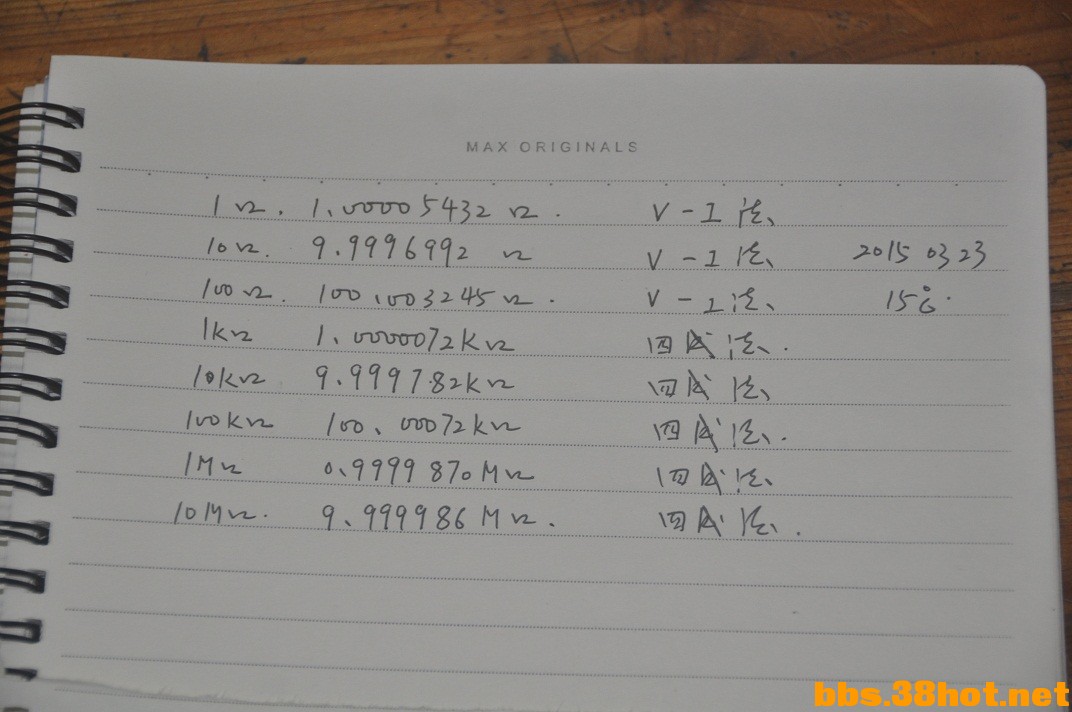 MAX ORIGINALS
1Ω. 1.00005432 Ω. V-I法
10Ω. 9.9996992 Ω V-I法 2015 03 23
100Ω. 100.003245Ω. V-I法 15℃.
1KΩ 1.0000072KΩ 四线法.
10KΩ 9.999782KΩ 四线法
100KΩ 100.00072KΩ 四线法.
1MΩ 0.9999870MΩ 四线法
10MΩ. 9.999986MΩ. 四线法.
bbs.38hot.net